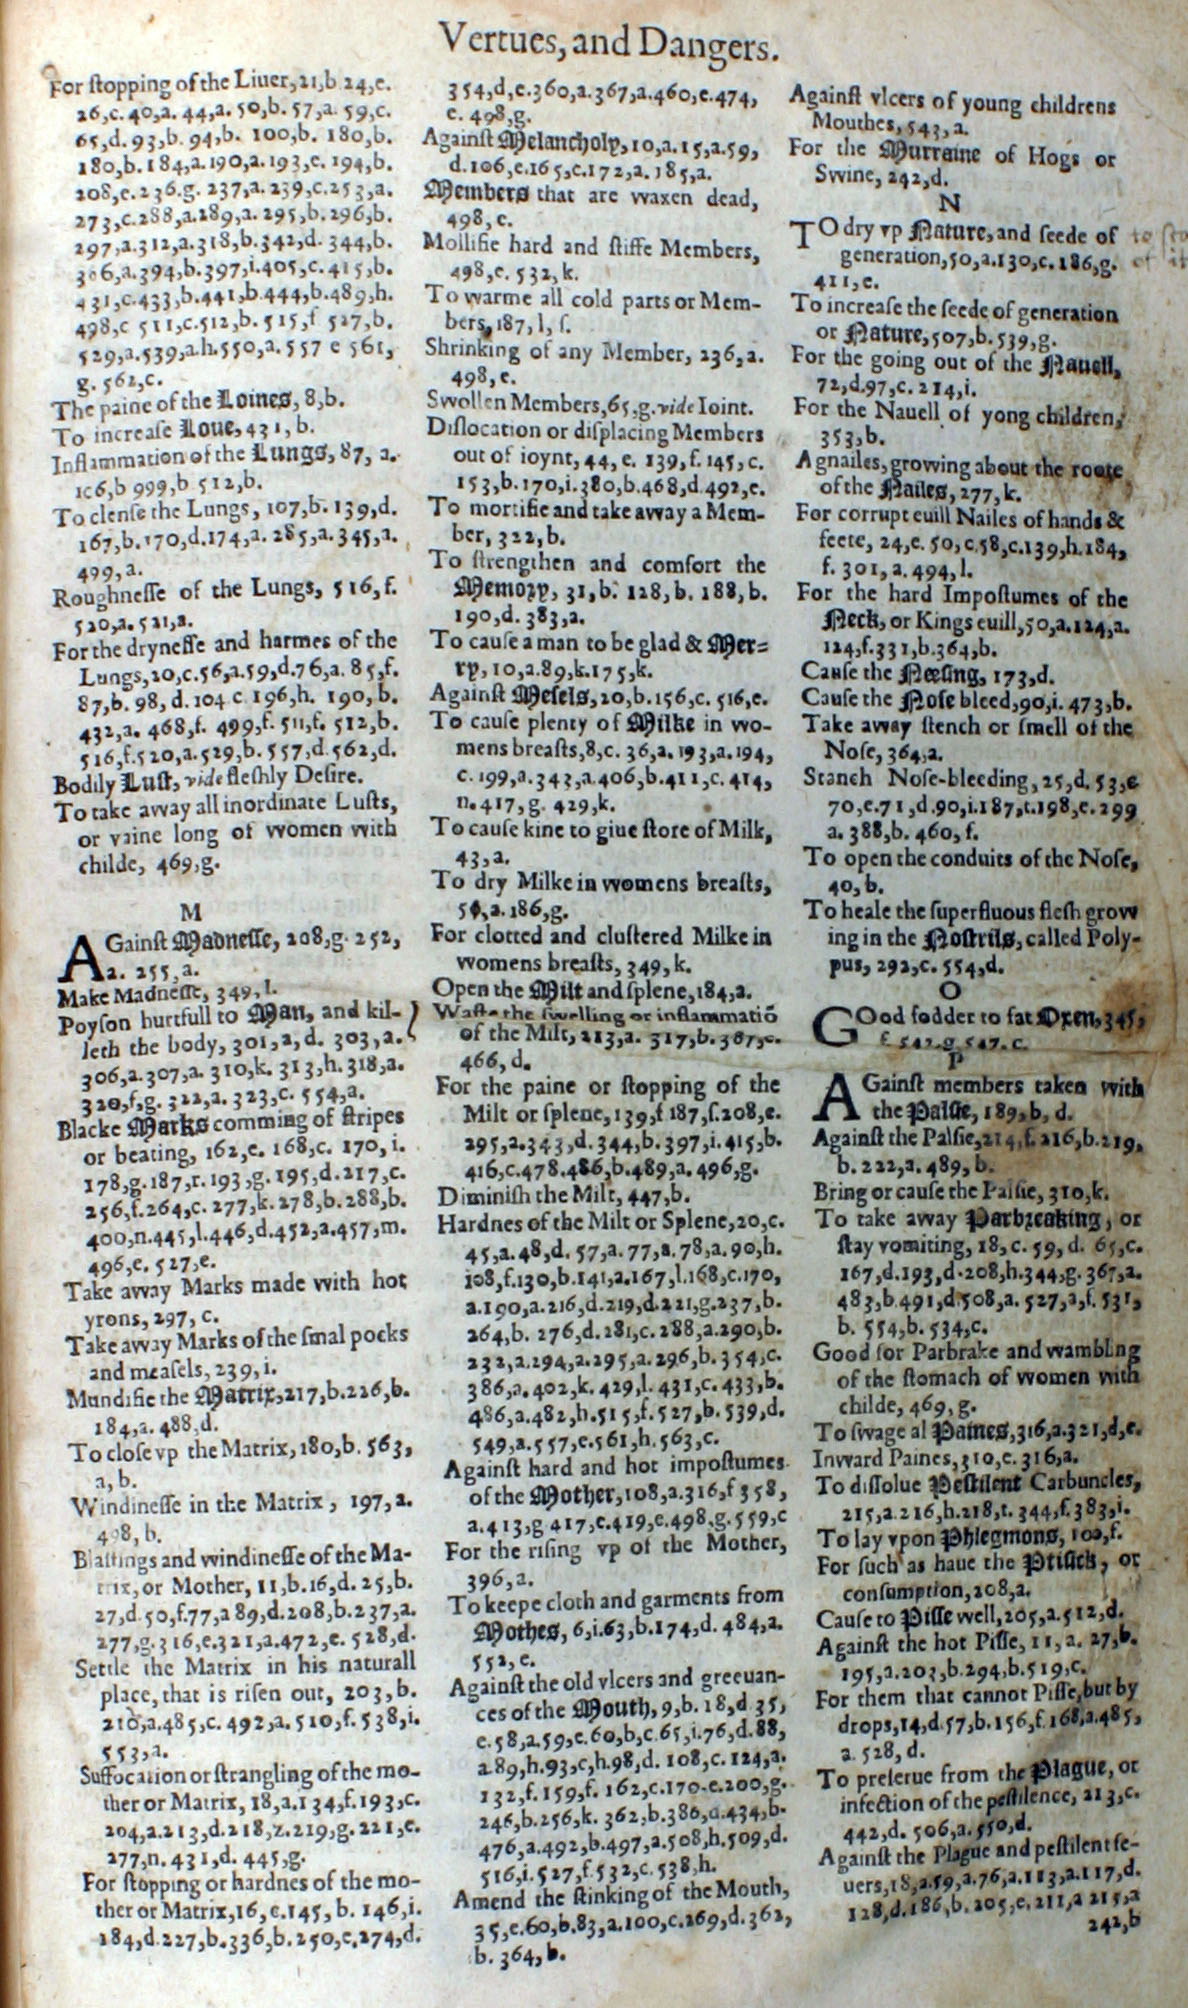 Vertues, and Dangers.
For ſtopping of the Liuer, 21,b 24,e.
26,c. 40,a. 44,a. 50,b. 57,a. 59,c.
65,d. 93,b. 94,b. 100,b. 180,b.
180,b. 184,a. 190,a. 193,e. 194,b.
208,e. 236.g. 237,a. 239,c. 253,a.
273,c. 288,a. 289,a. 295,b. 296,b.
297,a. 312,a. 318,b. 342,d. 344,b.
306,a. 394,b. 397,i. 405,c. 415,b.
431,c. 433,b. 441,b. 444,b. 489,h.
498,c 511,c. 512,b. 515,f 527,b.
529,a. 539,a.h. 550,a. 557 e 561,
g. 562,c.
The paine of the Loines, 8,b.
To increaſe Loue, 431,b.
Inflammation of the Lungs, 87, a.
106,b 999,b. 512,b.
To clenſe the Lungs, 107,b. 139,d.
167,b. 170,d. 174,a. 285,a. 345,a.
499,a.
Roughneſſe of the Lungs, 516,f.
520,a. 521,a.
For the dryneſſe and harmes of the
Lungs, 20,c. 56,a. 59,d. 76,a. 85,f.
87,b. 98, d. 104 c. 196,h. 190, b.
432,a. 468,f. 499,f. 511,f. 512,b.
516,f. 520,a. 529,b. 557,d. 562,d.
Bodily Luſt, vide fleſhly Deſire.
To take away all inordinate Luſts,
or vaine long of women with
childe, 469,g.
M
AGainſt Madneſſe, 208,g. 252,
a. 255,a.
Make Madneſſe, 349,l.
Poyſon hurtfull to Man, and kil-
leth the body, 301,a,d. 303,a.
306,a. 307,a. 310,k. 313,h. 318,a.
320,f,g. 322,a. 323,c. 554,a.
Blacke Marks comming of ſtripes
or beating, 162,e. 168,c. 170,i.
178,g. 187,r. 193,g. 195,d. 217,c.
256,f. 264,c. 277,k. 278,b. 288,b.
400,n. 445,l. 446,d. 452,a. 457,m.
496,e. 527,e.
Take away Marks made with hot
yrons, 297, c.
Take away Marks of the ſmal pocks
and meaſels, 239,i.
Mundifie the Matrix, 217,b. 226,b.
184,a. 488,d.
To cloſe vp the Matrix, 180,b. 563,
a,b.
Windineſſe in the Matrix, 197,a.
498,b.
Blaſtings and windineſſe of the Ma-
trix, or Mother, 11,b. 16,d. 25,b.
27,d. 50,f. 77,a 89,d. 208,b. 237,a.
277,g. 316,e. 321,a. 472,e. 528,d.
Settle the Matrix in his naturall
place, that is riſen out, 203,b.
210,a. 485,c. 492,a. 510,f. 538,i.
553,a.
Suffocation or ſtrangling of the mo-
ther or Matrix, 18,a. 134,f. 193,c.
204,a. 213,d. 218,z. 219,g. 221,e.
277,n. 431,d. 445,g.
For ſtopping or hardnes of the mo-
ther or Matrix, 16,e. 145, b. 146,i.
184,d. 227,b. 336,b. 250,e. 274,d.
354,d,e. 360,a. 367,a. 460,e. 474,
e. 498,g.
Againſt Melancholy, 10,a. 15,a. 59,
d. 106,e. 165,c. 172,a. 185,a.
Members that are waxen dead,
498,e.
Mollifie hard and ſtiffe Members,
498,e. 532,k.
To warme all cold parts or Mem-
bers, 187,l,ſ.
Shrinking of any Member, 236,a.
498,e.
Swollen Members, 65,g. vide Ioint.
Diſlocation or diſplacing Members
out of ioynt, 44, e. 139,f. 145,c.
153,b. 170,i. 380,b. 468,d. 492,e.
To mortifie and take away a Mem-
ber, 322,b.
To ſtrengthen and comfort the
Memory, 31,b. 128,b. 188,b.
190,d. 383,a.
To cauſe a man to be glad & Mer-
ry, 10,a. 89,k. 175,k.
Againſt Meſels, 20,b. 156,c. 516,e.
To cauſe plenty of Milke in wo-
mens breaſts, 8,c. 36,a. 193,a. 194,
c. 199,a. 343,a. 406,b. 411,c. 414,
n. 417,g. 429,k.
To cauſe kine to giue ſtore of Milk,
43,a.
To dry Milke in womens breaſts,
54,a. 186,g.
For clotted and cluſtered Milke in
womens breaſts, 349,k.
Open the Milt and ſplene, 184,a.
Waſte the ſwelling or inflammatiō
of the Milt, 213,a. 317,b. 387,c.
466,d.
For the paine or ſtopping of the
Milt or ſplene, 139,f 187,ſ. 208,e.
295,a. 343,d. 344,b. 397,i. 415,b.
416,c. 478. 486,b. 489,a. 496,g.
Diminiſh the Milt, 447,b.
Hardnes of the Milt or Splene, 20,c.
45,a. 48,d. 57,a. 77,a. 78,a. 90,h.
108,f. 130,b. 141,a. 167,l. 168,c. 170,
a. 190,a. 216,d. 219,d. 221,g. 237,b.
264,b. 276,d. 281,c. 288,a. 290,b.
232,a. 294,a. 295,a. 296,b. 354,c.
386,a. 402,k. 429,l. 431,c. 433,b.
486,a. 482,h. 515,f. 527,b. 539,d.
549,a. 557,e. 561,h. 563,c.
Againſt hard and hot impoſtumes
of the Mother, 108,a. 316,f 358,
a. 413,g 417,e. 419,e. 498,g. 559,c
For the riſing vp of the Mother,
396,a.
To keepe cloth and garments from
Mothes, 6,i. 63,b. 174,d. 484,a.
552,e.
Againſt the old vlcers and greeuan-
ces of the Mouth, 9,b. 18,d 35,
e. 58,a. 59,e. 60,b,c. 65,i. 76,d. 88,
a 89,h. 93,c,h. 98,d. 108,c. 124,a.
132,f. 159,f. 162,c. 170.e. 200,g.
246,b. 256,k. 362,b. 386,a. 434,b.
476,a. 492,b. 497,a. 508,h. 509,d.
516,i. 527,f. 532,c. 538,h.
Amend the ſtinking of the Mouth,
35,e. 60,b. 83,a. 100,c. 269,d. 362,
b. 364,b.
Againſt vlcers of young childrens
Mouthes, 543,a.
For the Murraine of Hogs or
Swine, 242,d.
N
TO dry vp Nature, and ſeede of
generation, 50,a. 130,c. 186,g.
411,e.
To increaſe the ſeede of generation
or Nature, 507,b. 539,g.
For the going out of the Nauell,
72,d. 97,c. 214,i.
For the Nauell of yong children,
353,b.
Agnailes, growing about the roote
of the Nailes, 277,k.
For corrupt euill Nailes of hands &
feete, 24,e. 50,c. 58,c. 139,h. 184,
f. 301,a. 494,l.
For the hard Impoſtumes of the
Neck, or Kings euill, 50,a. 124,a.
124,f. 331,b. 364,b.
Cauſe the Neeſing, 173,d.
Cauſe the Noſe bleed, 90,i. 473,b.
Take away ſtench or ſmell of the
Noſe, 364,a.
Stanch Noſe-bleeding, 25,d. 53,e
70,e. 71,d. 90,i. 187,t. 198,e. 299
a. 388,b. 460,f.
To open the conduits of the Noſe,
40,b.
To heale the ſuperfluous fleſh grow
ing in the Noſtrils, called Poly-
pus, 292,c. 554,d.
O
GOod fodder to fat Oxen, 345,
f. 542.g. 547.c.
P
AGainſt members taken with
the Palſie, 189,b, d.
Againſt the Palſie, 214,f. 216,b. 219,
b. 222,a. 489,b.
Bring or cauſe the Palſie, 310,k.
To take away Parbreaking, or
ſtay vomiting, 18,c. 59,d. 65,c.
167,d. 193,d. 208,h. 344,g. 367,a.
483,b. 491,d. 508,a. 527,a,f. 531,
b. 554,b. 534,c.
Good for Parbrake and wambling
of the ſtomach of women with
childe, 469,g.
To ſwage al Paines, 316,a. 321,d,e.
Inward Paines, 310,e. 316,a.
To diſſolue Peſtilent Carbuncles,
215,a. 216,h. 218,t. 344,f. 383,i.
To lay vpon Phlegmons, 100,f.
For ſuch as haue the Ptiſick, or
conſumption, 208,a.
Cauſe to Piſſe well, 205,a. 512,d.
Againſt the hot Piſſe, 11,a. 27,b.
195,a. 203,b. 294,b. 519,c.
For them that cannot Piſſe, but by
drops, 14,d. 57,b. 156,f. 168,a. 485,
a. 528,d.
To preſerue from the Plague, or
infection of the peſtilence, 213,c.
442,d. 506,a. 550,d.
Againſt the Plague and peſtilent fe-
uers, 18,a. 59,a. 76,a. 113,a. 117,d.
128,d. 186,b. 205,e. 211,a 215,a
242,b